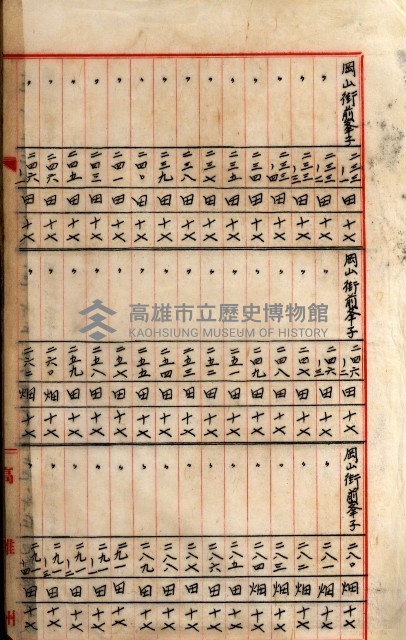 岡山街前峯子 二三三ノ一 田 十七
〃 二三三ノ二 田 十七
〃 二三三ノ三 田 十七
〃 二三三ノ四 田 十七
〃 二三四 田 十七
〃 二三五 田 十七
〃 二三七 田 十七
〃 二三八 田 十七
〃 二三九 田 十七
〃 二四〇 田 十七
〃 二四一 田 十七
〃 二四三 田 十七
〃 二四五 田 十七
〃 二四六 田 十七
二四六ノ一 田 十七
岡山街前峯子 二四六ノ二 田 十七
〃 二四六ノ三 田 十七
〃 二四七 田 十七
〃 二四八 田 十七
〃 二四九 田 十七
〃 二五一 田 十七
〃 二五二 田 十七
〃 二五三 田 十七
〃 二五四 田 十七
〃 二五五 田 十七
〃 二五七 田 十七
〃 二五八 田 十七
〃 二五九 田 十七
〃 二六〇 畑 十七
二六二 畑 十七
岡山街前峯子 二八〇 畑 十七
〃 二八一 畑 十七
〃 二八二 畑 十七
〃 二八三 畑 十七
〃 二八四 畑 十七
〃 二八五 田 十七
〃 二八六 田 十七
〃 二八七 田 十七
〃 二八八 田 十七
〃 二八九 田 十七
〃 二九一 田 十七
〃 二九一ノ一 田 十七
〃 二九一ノ二 田 十七
〃 二九一ノ三 田 十七
二九一ノ四 田 十七
高雄州
高雄市立歷史博物館
KAOHSIUNG MUSEUM OF HISTORY